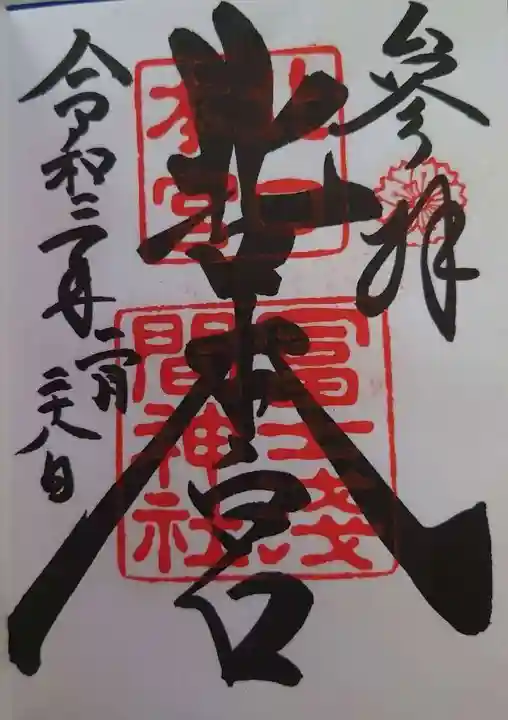 参拝
北口本宮
北口
本宮
冨士淺
間神社
令和三年
二月
二十八日